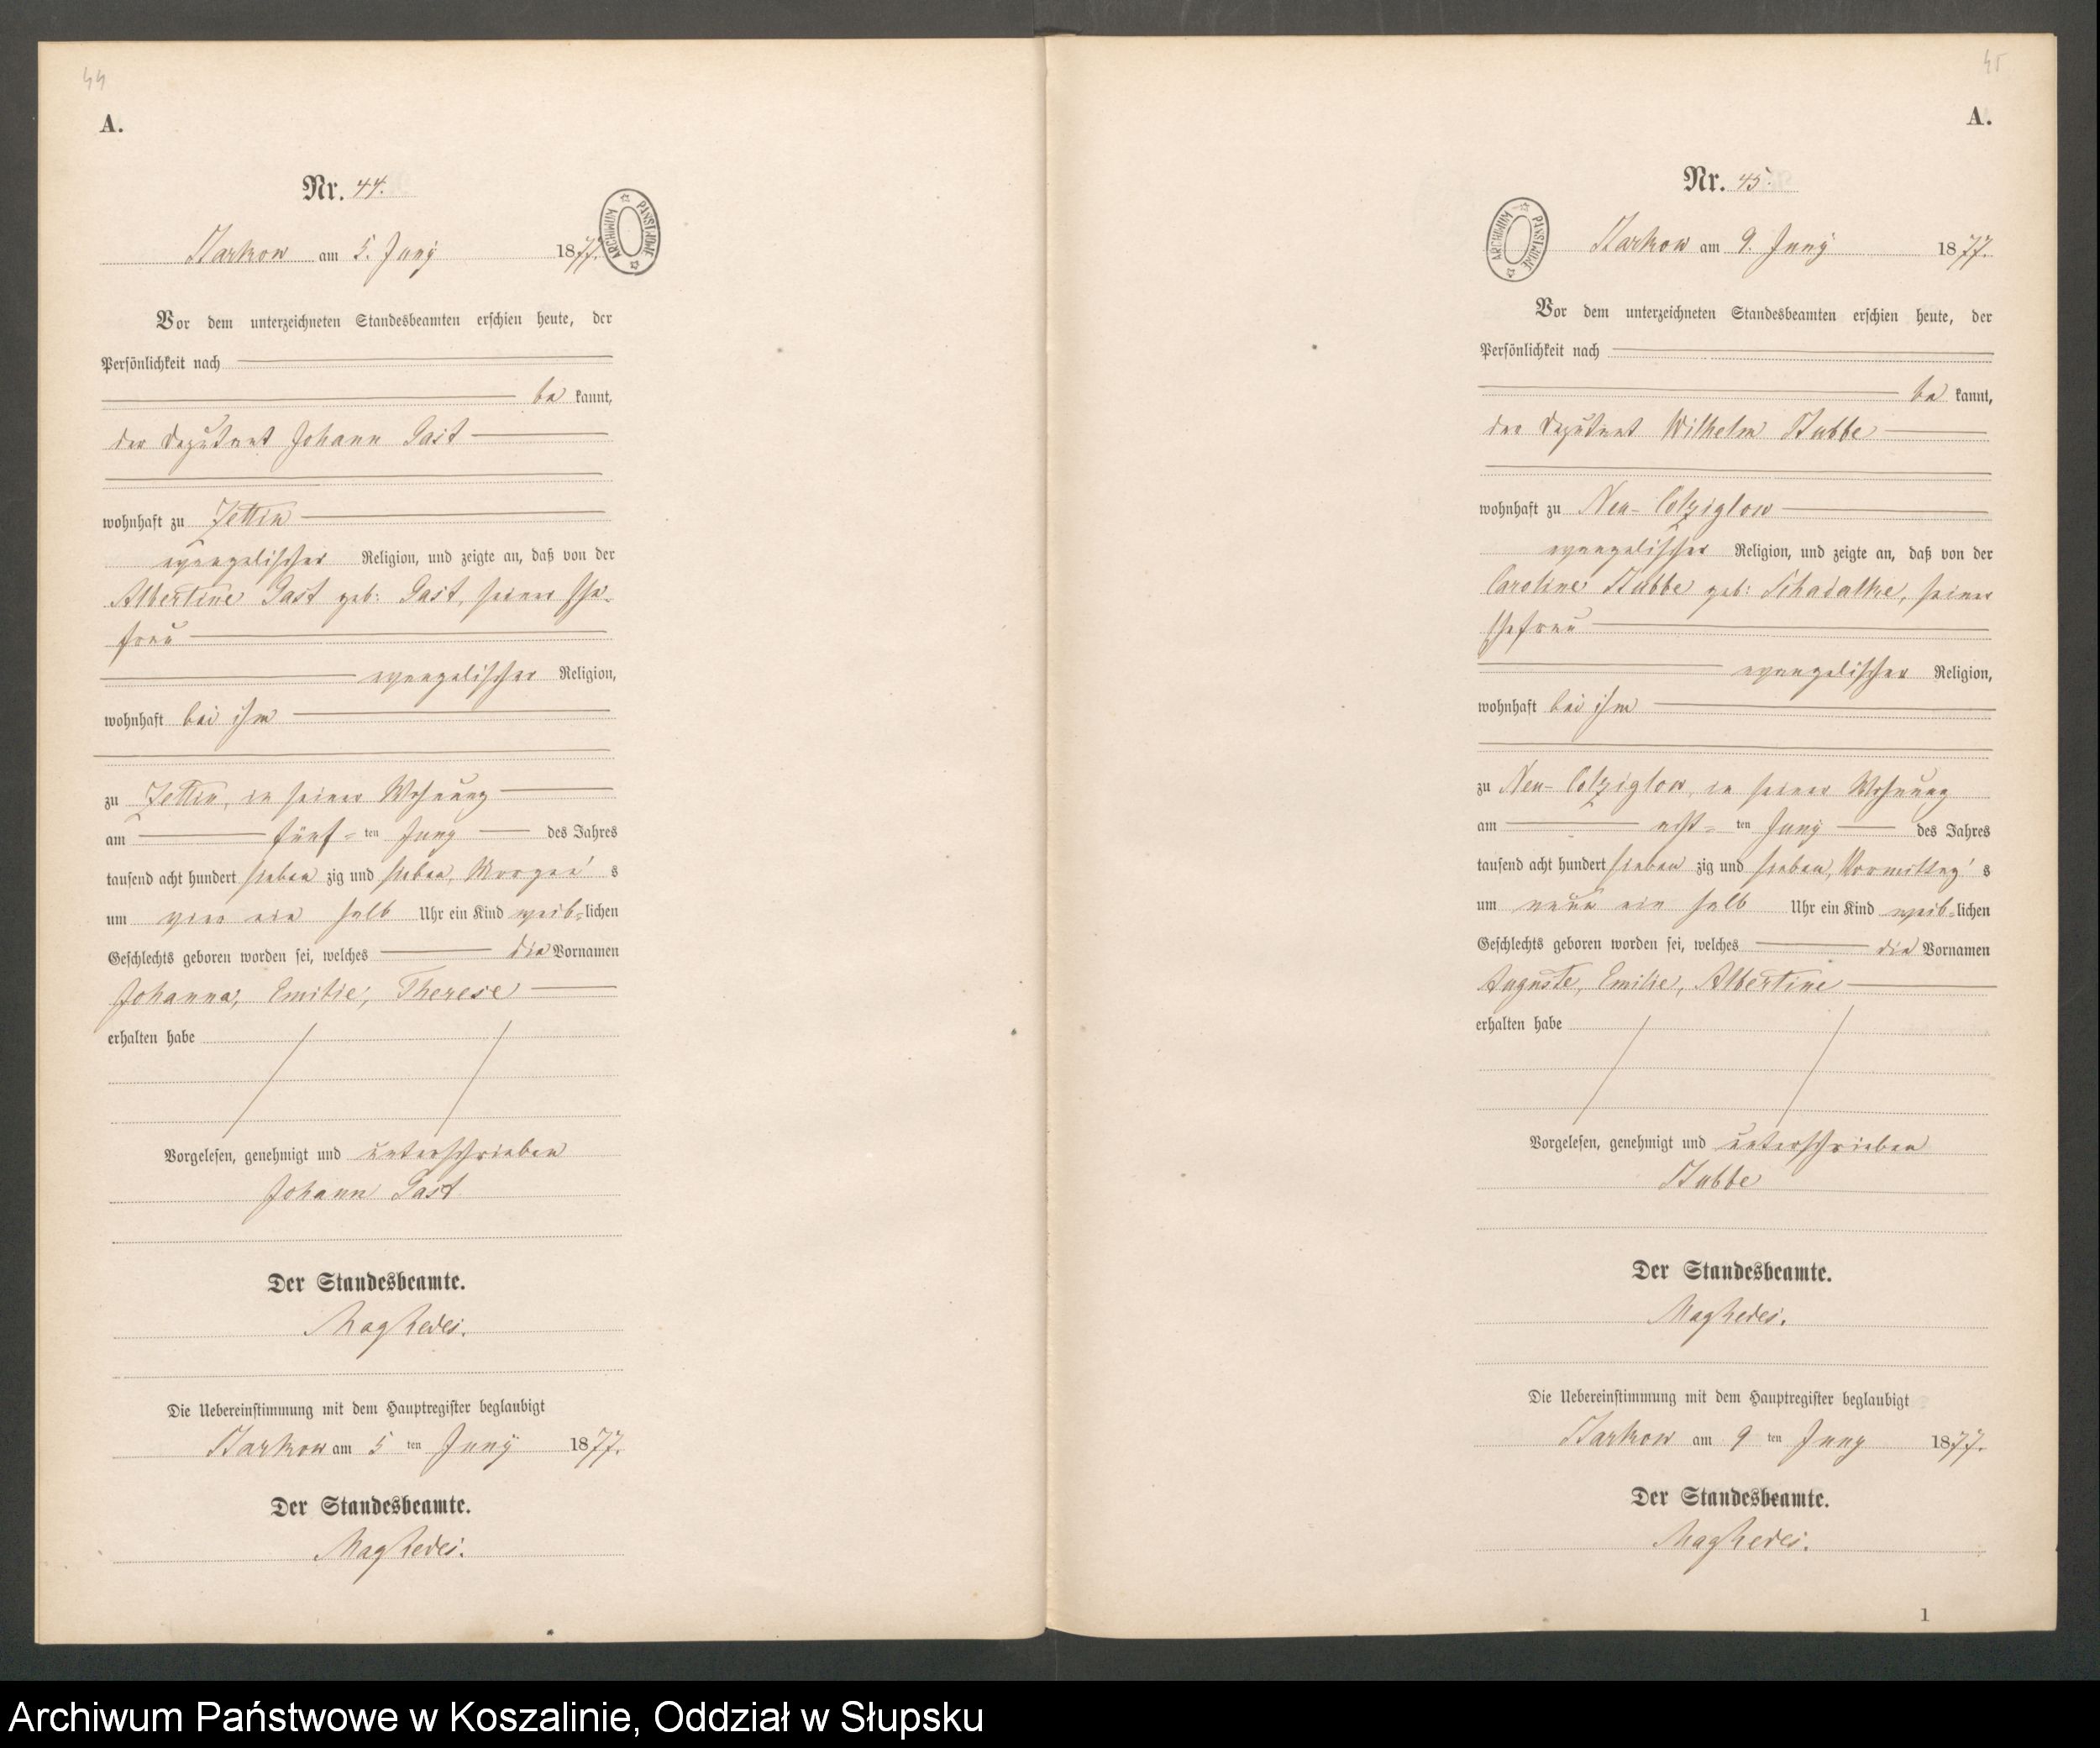 44
A.
Nr. 44.
ARCHIWUM PAŃSTWOWE
Starkow am 5. Juny 1877.
Vor dem unterzeichneten Standesbeamten erschien heute, der
Persönlichkeit nach
be kannt,
der Deputant Johann Gast
wohnhaft zu Jettin
evangelischer Religion, und zeigte an, daß von der
Albertine Gast geb: Gast, seiner Ehe-
frau
evangelischer Religion,
wohnhaft bei ihm
zu Jettin, in seiner Wohnung
am fünf-ten Juny des Jahres
tausend acht hundert sieben zig und sieben, Morgen's
um vier ein halb Uhr ein Kind weib-lichen
Geschlechts geboren worden sei, welches die Vornamen
Johanna, Emilie, Therese
erhalten habe
Vorgelesen, genehmigt und unterschrieben
Johann Gast
Der Standesbeamte.
Die Uebereinstimmung mit dem Hauptregister beglaubigt
Starkow am 5 ten Juny 1877.
Der Standesbeamte.
45
A.
Nr. 45.
ARCHIWUM PAŃSTWOWE
Starkow am 9. Juny 1877.
Vor dem unterzeichneten Standesbeamten erschien heute, der
Persönlichkeit nach
be kannt,
der Deputant Wilhelm Stubbe
wohnhaft zu Neu-Colziglow
evangelischer Religion, und zeigte an, daß von der
Caroline Stubbe geb: Schadalke, seiner
Ehefrau
evangelischer Religion,
wohnhaft bei ihm
zu Neu-Colziglow, in seiner Wohnung
am acht-ten Juny des Jahres
tausend acht hundert sieben zig und sieben, Vormittag's
um neun ein halb Uhr ein Kind weib-lichen
Geschlechts geboren worden sei, welches die Vornamen
Auguste, Emilie, Albertine
erhalten habe
Vorgelesen, genehmigt und unterschrieben
Stubbe
Der Standesbeamte.
Die Uebereinstimmung mit dem Hauptregister beglaubigt
Starkow am 9 ten Juny 1877.
Der Standesbeamte.
1
Archiwum Państwowe w Koszalinie, Oddział w Słupsku